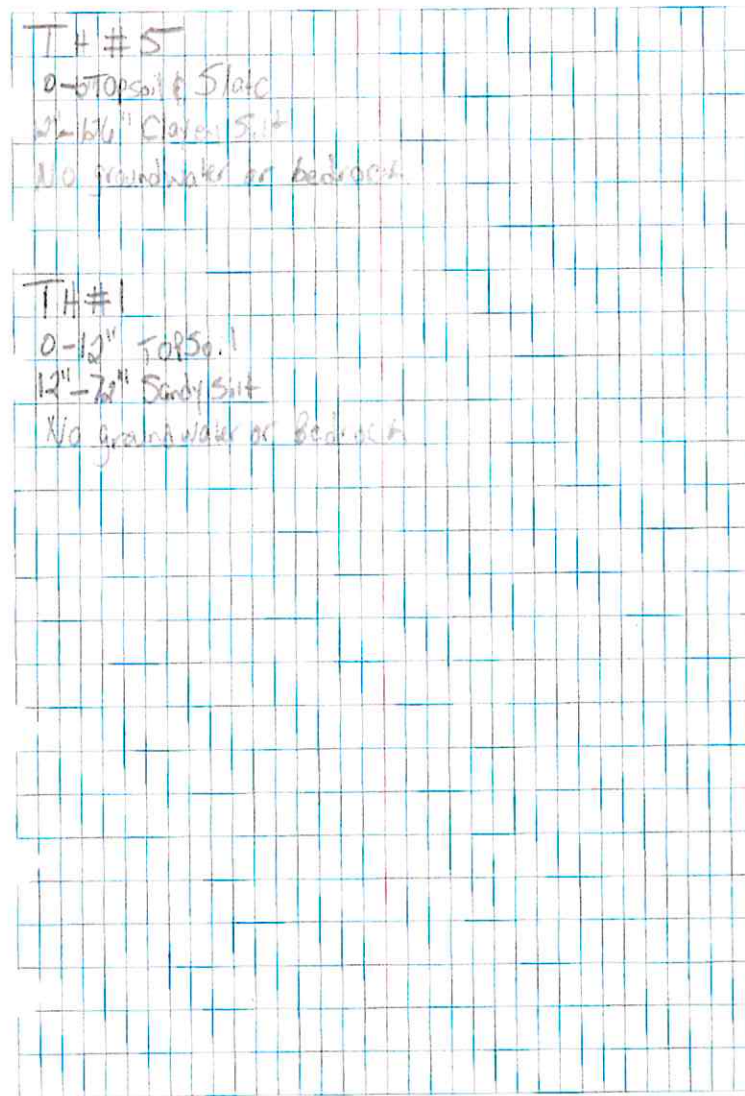 TH #5
Topsoil & Slate
Clayey Silt
No groundwater or bedrock
TH #1
0-12" TOPSoil
12"-72" Sandy silt
No groundwater or Bedrock